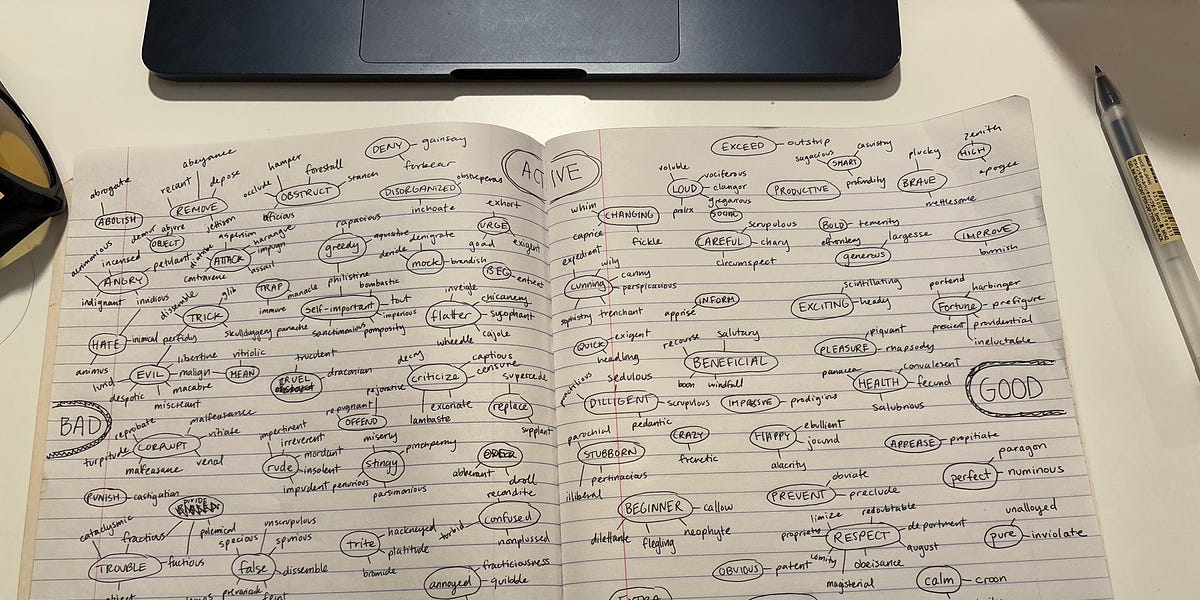 ACTIVE
BAD
GOOD
DENY gainsay forbear
abeyance
abrogate ABOLISH
recant REMOVE depose jettison
hamper forestall occlude OBSTRUCT stanch officious
DISORGANIZED obstreperous inchoate
demur abjure OBJECT
diatribe aspersion harangue ATTACK impugn assail contravene
rapacious greedy acquisitive
denigrate deride mock
exhort URGE exigent
goad brandish
BEG entreat
acrimonious incensed ANGRY petulant indignant invidious
TRAP immure manacle
dissemble glib TRICK perfidy skullduggery
philistine bombastic self-important tout imperious panache sanctimonious pomposity
inveigle chicanery flatter sycophant wheedle cajole
HATE inimical animus
libertine vitriolic EVIL malign MEAN lurid despotic macabre miscreant
truculent CRUEL draconian
decry captious censure criticize pejorative excoriate lambaste
repugnant OFFEND
supercede replace supplant
reprobate malfeasance CORRUPT vitiate turpitude malfeasance venal
impertinent irreverent mordant rude insolent impudent
miserly pinchpenny stingy penurious parsimonious
ORDER aberrant droll
PUNISH castigation
DIVIDE fractious polemical
cataclysmic TROUBLE fuctious
unscrupulous specious spurious false dissemble prevaricate feint
hackneyed trite platitude bromide
recondite turbid confused nonplussed
fractiousness annoyed quibble
EXCEED outstrip
sagacious casuistry SMART profundity
plucky BRAVE mettlesome
zenith HIGH apogee
voluble vociferous LOUD clangor prolix
gregarious SOCIAL
PRODUCTIVE
whim CHANGING caprice fickle
scrupulous CAREFUL chary circumspect
BOLD temerity effrontery
largesse generous
IMPROVE burnish
expedient wily cunning canny perspicacious sophistry trenchant
INFORM apprise
scintillating EXCITING heady
portend harbinger Fortune prefigure prescient providential ineluctable
QUICK exigent headlong
recourse salutary BENEFICIAL boon windfall
piquant PLEASURE rhapsody
panacea convalescent HEALTH fecund salubrious
punctilious sedulous DILLIGENT scrupulous pedantic
IMPRESSIVE prodigious
parochial STUBBORN pertinacious illiberal
CRAZY frenetic
ebullient HAPPY jocund alacrity
APPEASE propitiate
paragon perfect numinous
obviate PREVENT preclude
BEGINNER callow dilettante flegling neophyte
limize redoubtable propriety RESPECT deportment august comity obeisance magisterial
unalloyed pure inviolate
OBVIOUS patent
calm croon
EXTRA